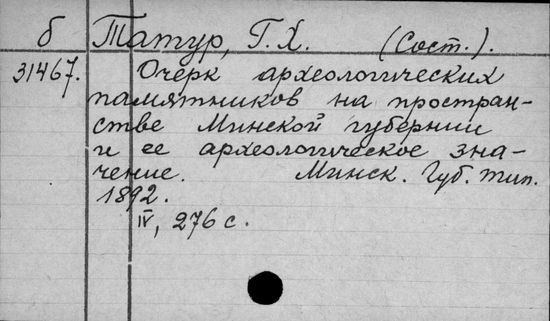 б Татур, Г. Х. (Сост.).
31467. Очерк археологических
памятников на простран-
стве Минской губернии
и ее археологическое зна-
чение. Минск. Губ. тип.
1892.
IV, 276 с.